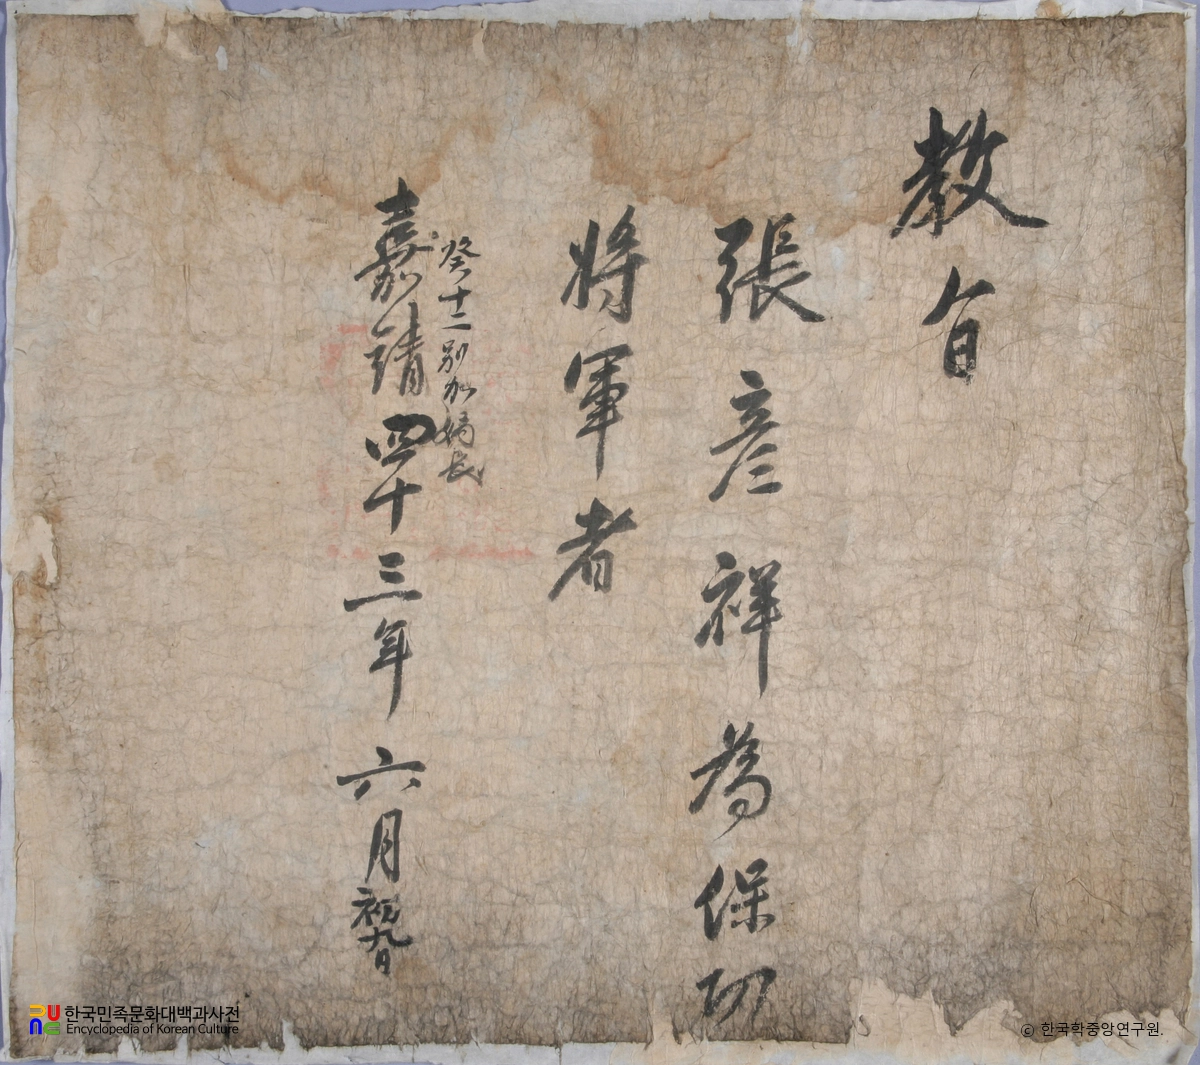 教旨
張彦祥爲保功
將軍者
癸十二別加嫡長
嘉靖四十三年六月初九日
한국민족문화대백과사전
Encyclopedia of Korean Culture
© 한국학중앙연구원.